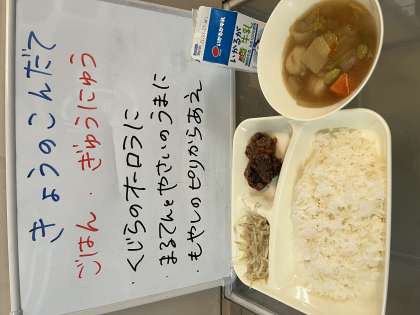 きょうのこんだて
ごはん・ぎゅうにゅう
・くじらのオーロラに
・まるてんとやさいのうまに
・もやしのピリからあえ
いかるが
牛乳